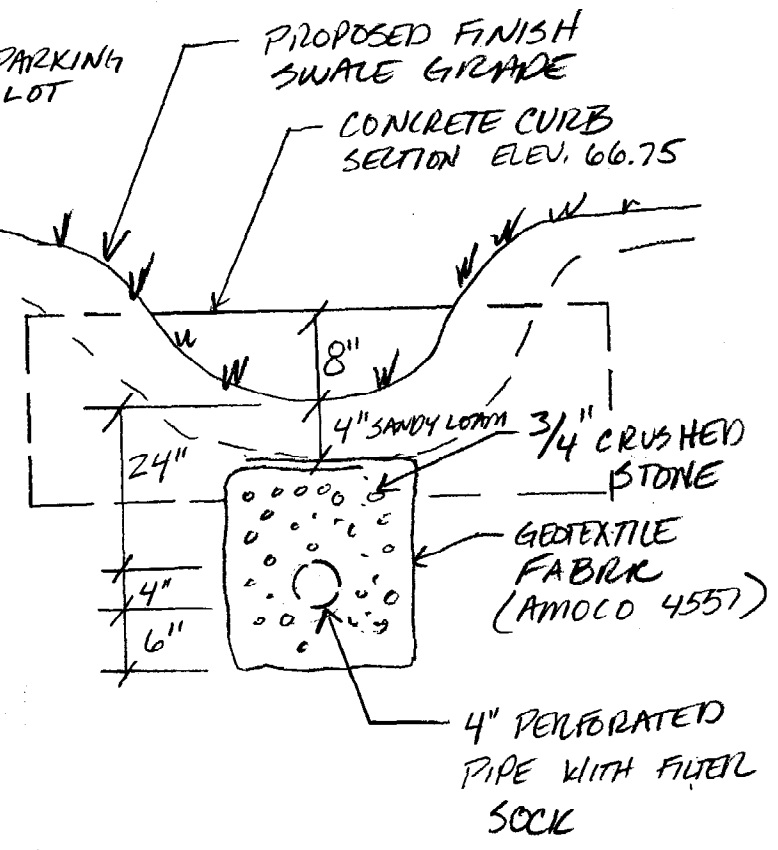 PARKING
LOT
PROPOSED FINISH
SWALE GRADE
CONCRETE CURB
SECTION ELEV. 66.75
8"
4" SANDY LOAM
3/4" CRUSHED
STONE
24"
GEOTEXTILE
FABRIC
(AMOCO 4557)
4"
6"
4" PERFORATED
PIPE WITH FILTER
SOCK